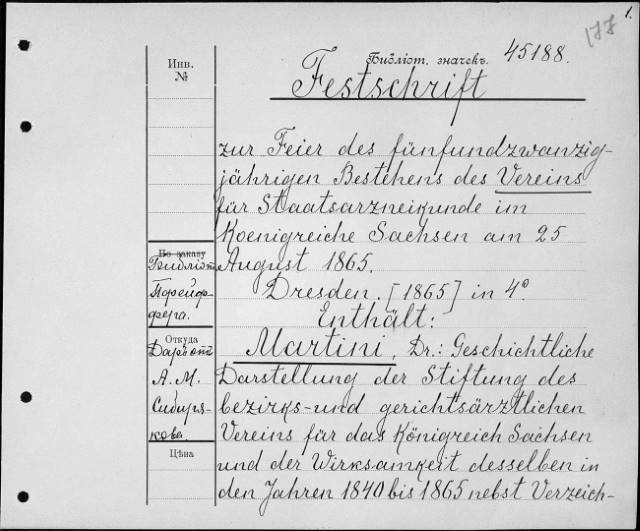 1.
177
Библіот. значекъ. 45188.
Инв.
№
Festschrift
zur Feier des fünfundzwanzig-
jährigen Bestehens des Vereins
für Staatsarzneikunde im
Koenigreiche Sachsen am 25
August 1865.
Dresden. [1865] in 4°
Enthält:
Martini, Dr.: Geschichtliche
Darstellung der Stiftung des
bezirks- und gerichtsärztlichen
Vereins für das Königreich Sachsen
und der Wirksamkeit desselben in
den Jahren 1840 bis 1865 nebst Verzeich-
По заказу
Библіот.
Порейф-
фера.
Откуда
Даръ отъ
А. М.
Сибиря-
кова.
Цѣна